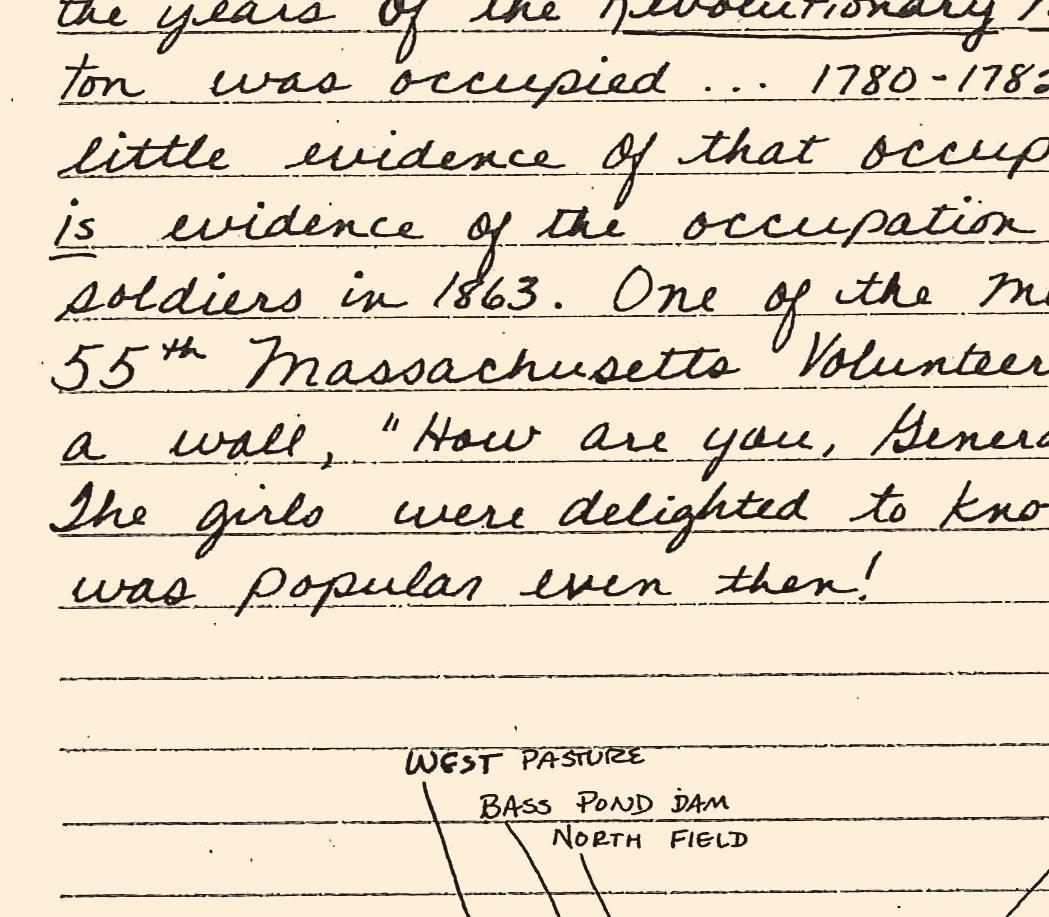 the years of the Revolutionary
ton was occupied ... 1780-178
little evidence of that occup
is evidence of the occupation
soldiers in 1863. One of the M
55th Massachusetts Volunteer
a wall, "How are you, Genera
The girls were delighted to kno
was popular even then!
WEST PASTURE
BASS POND DAM
NORTH FIELD